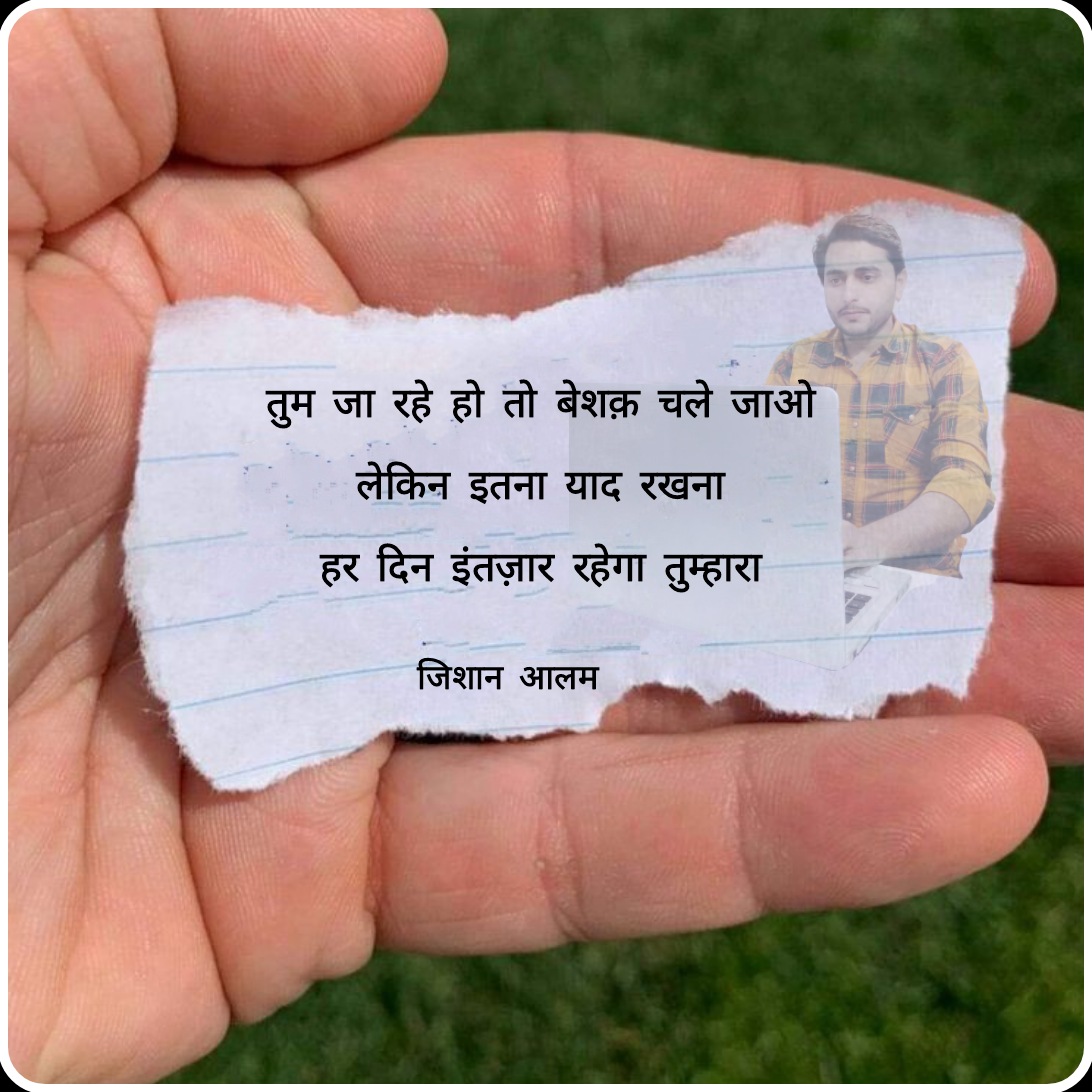 तुम जा रहे हो तो बेशक़ चले जाओ
लेकिन इतना याद रखना
हर दिन इंतज़ार रहेगा तुम्हारा
जिशान आलम